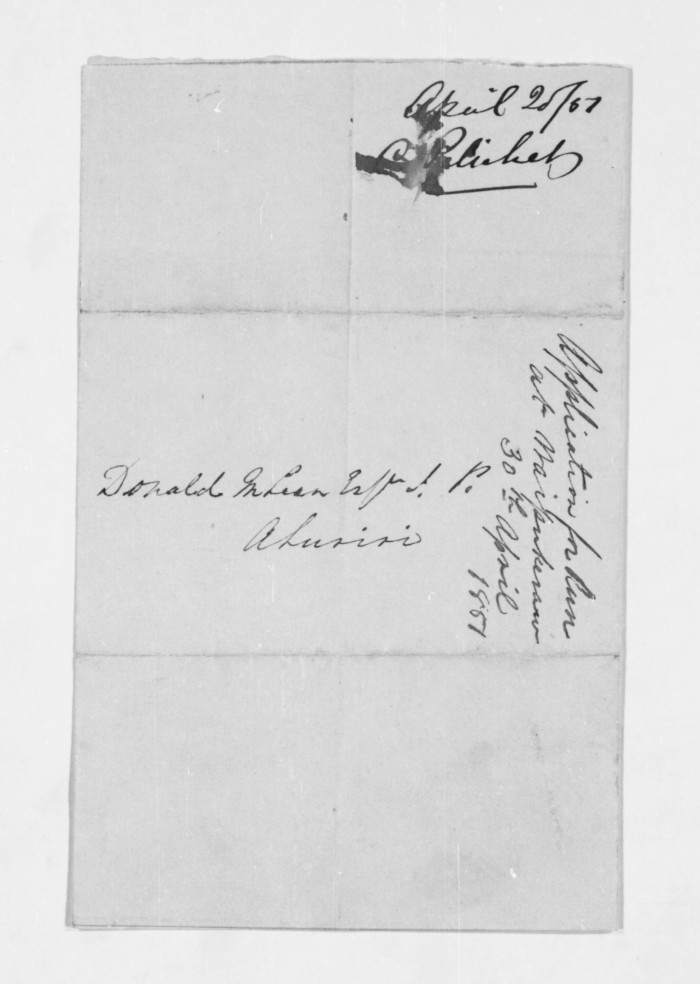 April 20/51
C. Pelichet
Donald McLean Esqr J. P.
Ahuriri
Application for Run
at Waipukurau
30th April
1851